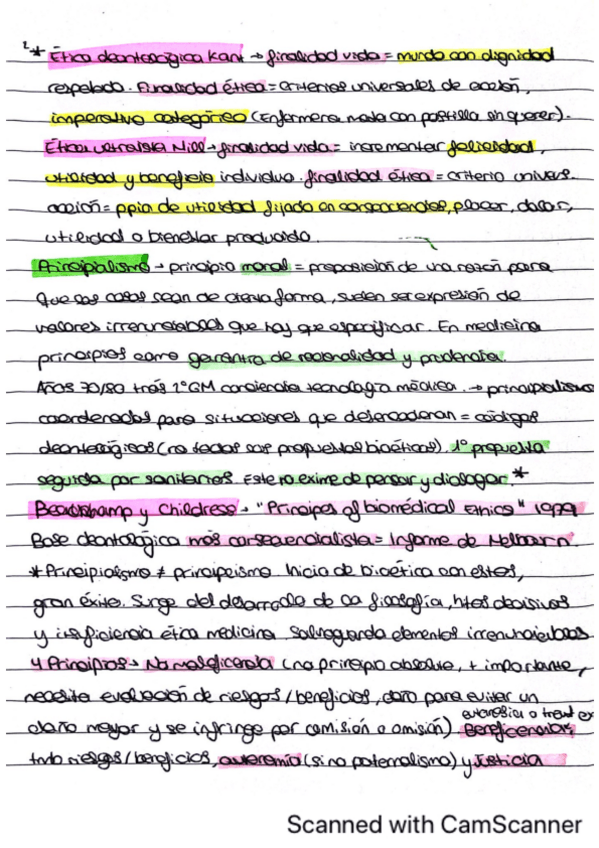 * Ética deontológica Kant → finalidad vida = mundo con dignidad
respetado. Finalidad ética = criterios universales de acción,
imperativo categórico (Enfermera mata con pastilla sin querer).
Ética utilitarista Mill → finalidad vida = incrementar felicidad,
utilidad y beneficio individuo. finalidad ética = criterio univers.
acción = ppio de utilidad fijado en consecuencias, placer, dolor,
utilidad o bienestar producido.
Principialismo → principio moral = proposición de una razón para
que las cosas sean de cierta forma, suelen ser expresión de
valores irrenunciables que hay que especificar. En medicina
principios como garantía de racionalidad y prudencia.
Años 70/80 trás 2ªGM conciencia tecnología médica. → principialismo
coordenadas para situaciones que = códigos
deontológicos (no todas sus propuestas bioéticas). 1ª propuesta
seguida por sanitarios. Este no exime de pensar y dialogar. *
Beauchamp y Childress → "Principes of biomédical Ethics" 1979
Base deontológica más consecuencialista = Informe de
* Principialismo ≠ principeismo. Inicio de bioética con estos,
gran éxito. Surge del desarrollo de la filosofía, hitos decisivos
y insuficiencia ética medicina. Salvaguarda elementos irrenunciables
4 Principios → No maleficencia (no principio absoluto, + importante,
necesita evaluación de riesgos/beneficios, daño para evitar un
daño mayor y se infringe por comisión o omisión) Beneficencia
riesgos/beneficios, autonomía (sino paternalismo) y Justicia
Scanned with CamScanner